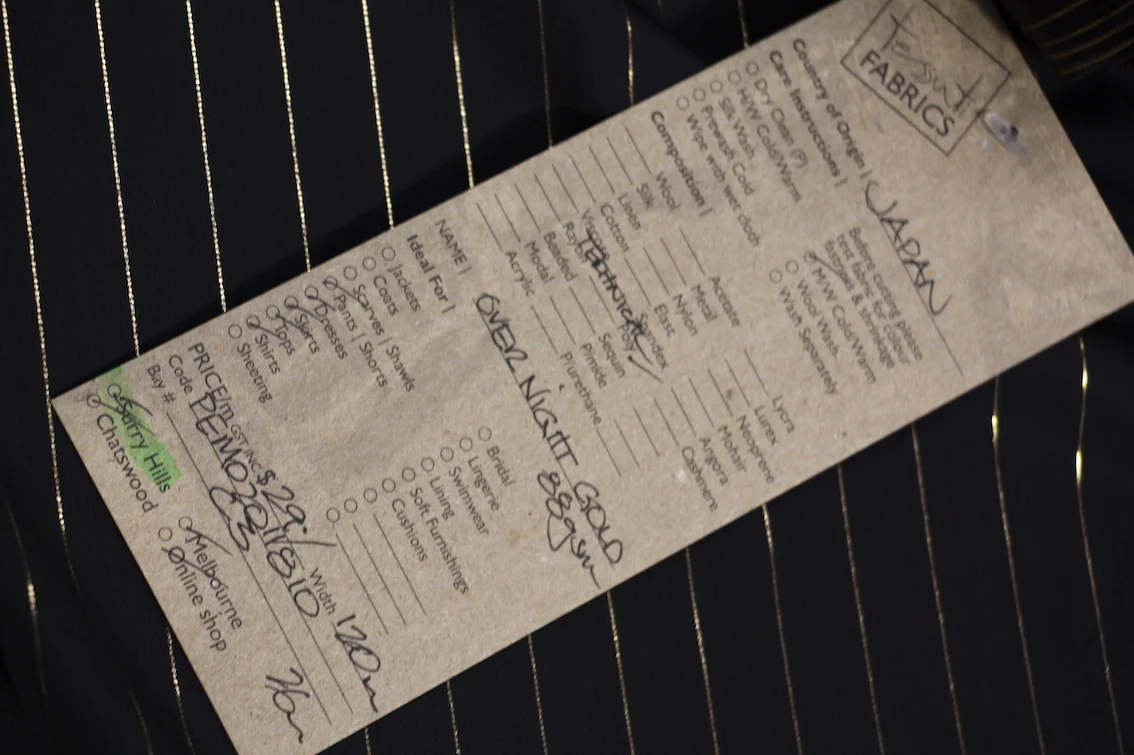 Tessuti
FABRICS
Country of Origin | JAPAN
Care Instructions |
Before cutting please
test fabric for colour
fastness & shrinkage
Dry Clean (P)
H/W Cold/Warm
Silk Wash
Prewash Cold
Wipe with wet cloth
M/W Cold/Warm
Wool Wash
Wash Separately
Composition |
Wool Acetate Lycra
Silk Metal Lurex
Linen Nylon Neoprene
Cotton Elast Mohair
Spandex Angora
Sequin Cashmere
Beaded
Modal P/urethane
Acrylic
NAME | OVER NIGHT GOLD
88gsm
Ideal For |
Jackets
Coats
Scarves | Shawls
Pants | Shorts
Dresses
Skirts
Tops
Shirts
Sheeting
Bridal
Lingerie
Swimwear
Lining
Soft Furnishings
Cushions
PRICE/m GST INC $ 29 Width 120
Code
Buy #
Surry Hills
Chatswood
Melbourne
Online shop